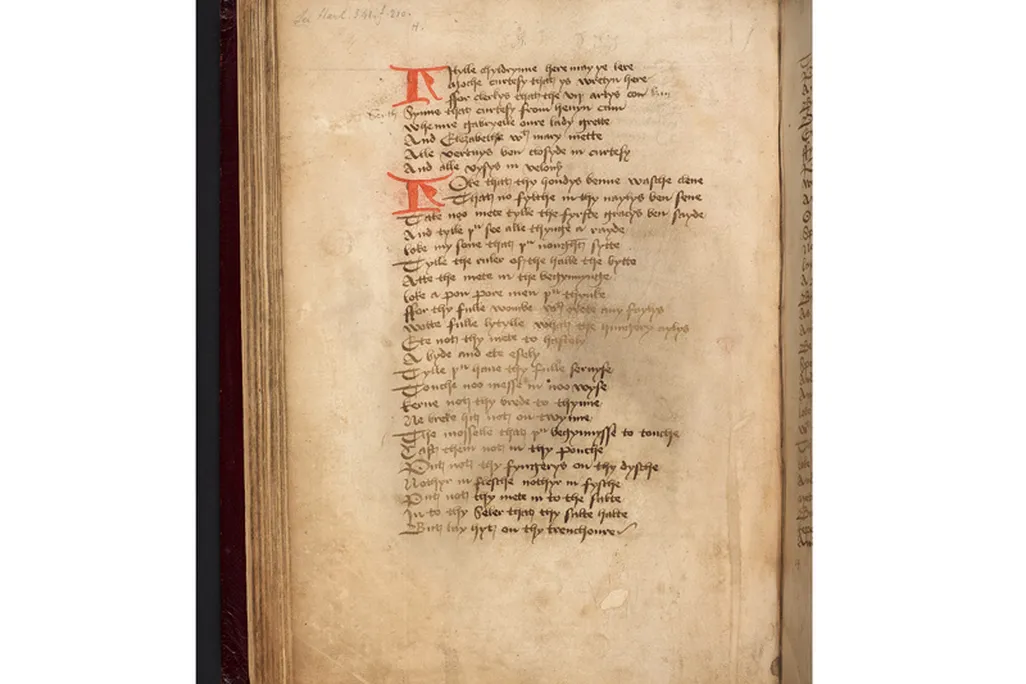 See Harl. 541. f. 210.
Lytylle chyldrynne here may ye lere
Moche curtesy that ys wretyn here
ffor clerkys that the vij artys con
Synne that curtesy from hevyn com
Whenne Gabryelle oure lady grette
And Elezabethe wt mary mette
Alle vertuys ben closyde in curtesy
And alle vysys in velony
Loke that thy hondys benne wasche clene
That no fylthe in thy naylys ben sene
Take noo mete tylle the fyrste gracys ben sayde
And tylle pu see alle thynge a rayde
Loke my sone that pu nought sytte
Tylle the ruler of the halle the bytte
Atte the mete in the begynnynge
Loke a pon pore men pu thynke
ffor thy fulle wombe any faylys
Wotte fulle lytylle what the hungery aylys
Ete not thy mete to hastely
A byde and ete esely
Tylle pu have thy fulle servyse
Touche noo messe in noo wyse
Kerve not thy brede to thynne
Ne breke hit not on twynne
The morselle that pu begynnysse to touche
Cast them not in thy powche
Put not thy fyngerys on thy dysche
Nothyr in flesche nothyr in fysche
Put not thy mete in to the salte
In to thy Seler that thy salte halte
But lay hyt on thy trenchoure